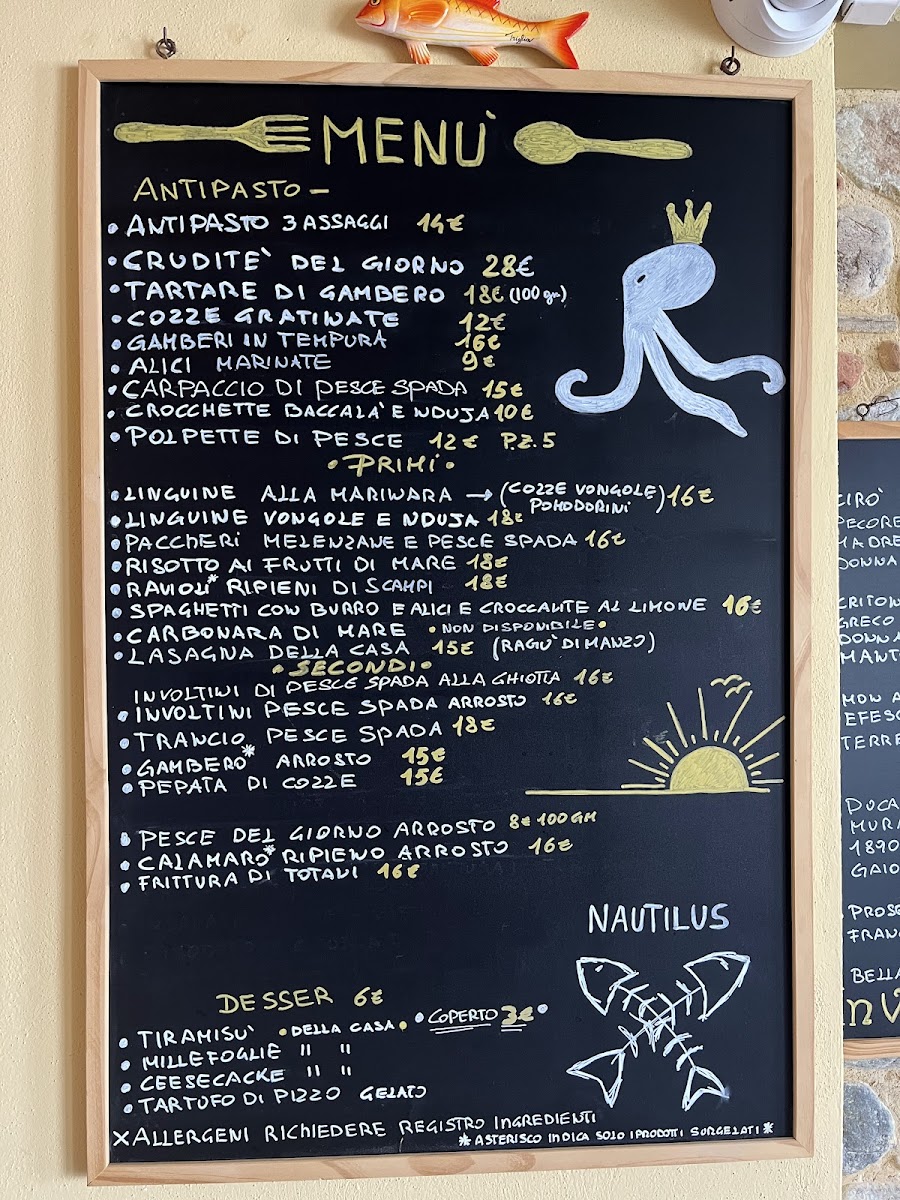 Triglia
MENÙ
ANTIPASTO –
• ANTIPASTO 3 ASSAGGI 14€
• CRUDITE' DEL GIORNO 28€
• TARTARE DI GAMBERO 18€ (100 gm)
• COZZE GRATINATE 12€
• GAMBERI IN TEMPURA 16€
• ALICI MARINATE 9€
• CARPACCIO DI PESCE SPADA 15€
• CROCCHETTE BACCALA' E NDUJA 10€
• POLPETTE DI PESCE 12€ P.Z. 5
• PRIMI •
• LINGUINE ALLA MARINARA → (COZZE VONGOLE POMODORINI) 16€
• LINGUINE VONGOLE E NDUJA 18€
• PACCHERI MELENZANE E PESCE SPADA 16€
• RISOTTO AI FRUTTI DI MARE 18€
• RAVIOLI* RIPIENI DI SCAMPI 18€
• SPAGHETTI CON BURRO E ALICI E CROCCANTE AL LIMONE 16€
• CARBONARA DI MARE • NON DISPONIBILE •
• LASAGNA DELLA CASA 15€ (RAGÙ DI MANZO)
• SECONDI •
INVOLTINI DI PESCE SPADA ALLA GHIOTTA 16€
• INVOLTINI PESCE SPADA ARROSTO 16€
• TRANCIO PESCE SPADA 18€
• GAMBERO* ARROSTO 15€
• PEPATA DI COZZE 15€
• PESCE DEL GIORNO ARROSTO 8€ 100GM
• CALAMARO* RIPIENO ARROSTO 16€
• FRITTURA DI TOTANI 16€
NAUTILUS
DESSER 6€
• COPERTO 3€ •
• TIRAMISU' • DELLA CASA •
• MILLEFOGLIE " "
• CEESECACKE " "
• TARTUFO DI PIZZO GELATO
X ALLERGENI RICHIEDERE REGISTRO INGREDIENTI
* ASTERISCO INDICA SOLO I PRODOTTI SURGELATI *
CIRO'
PECORE
MADRE
DONNA
CRITON
GRECO
DONNA
MANTO
MON A
EFESO
TERRE
DUCA
MURA
1890
GAIO
PROSE
FRAN
BELLA